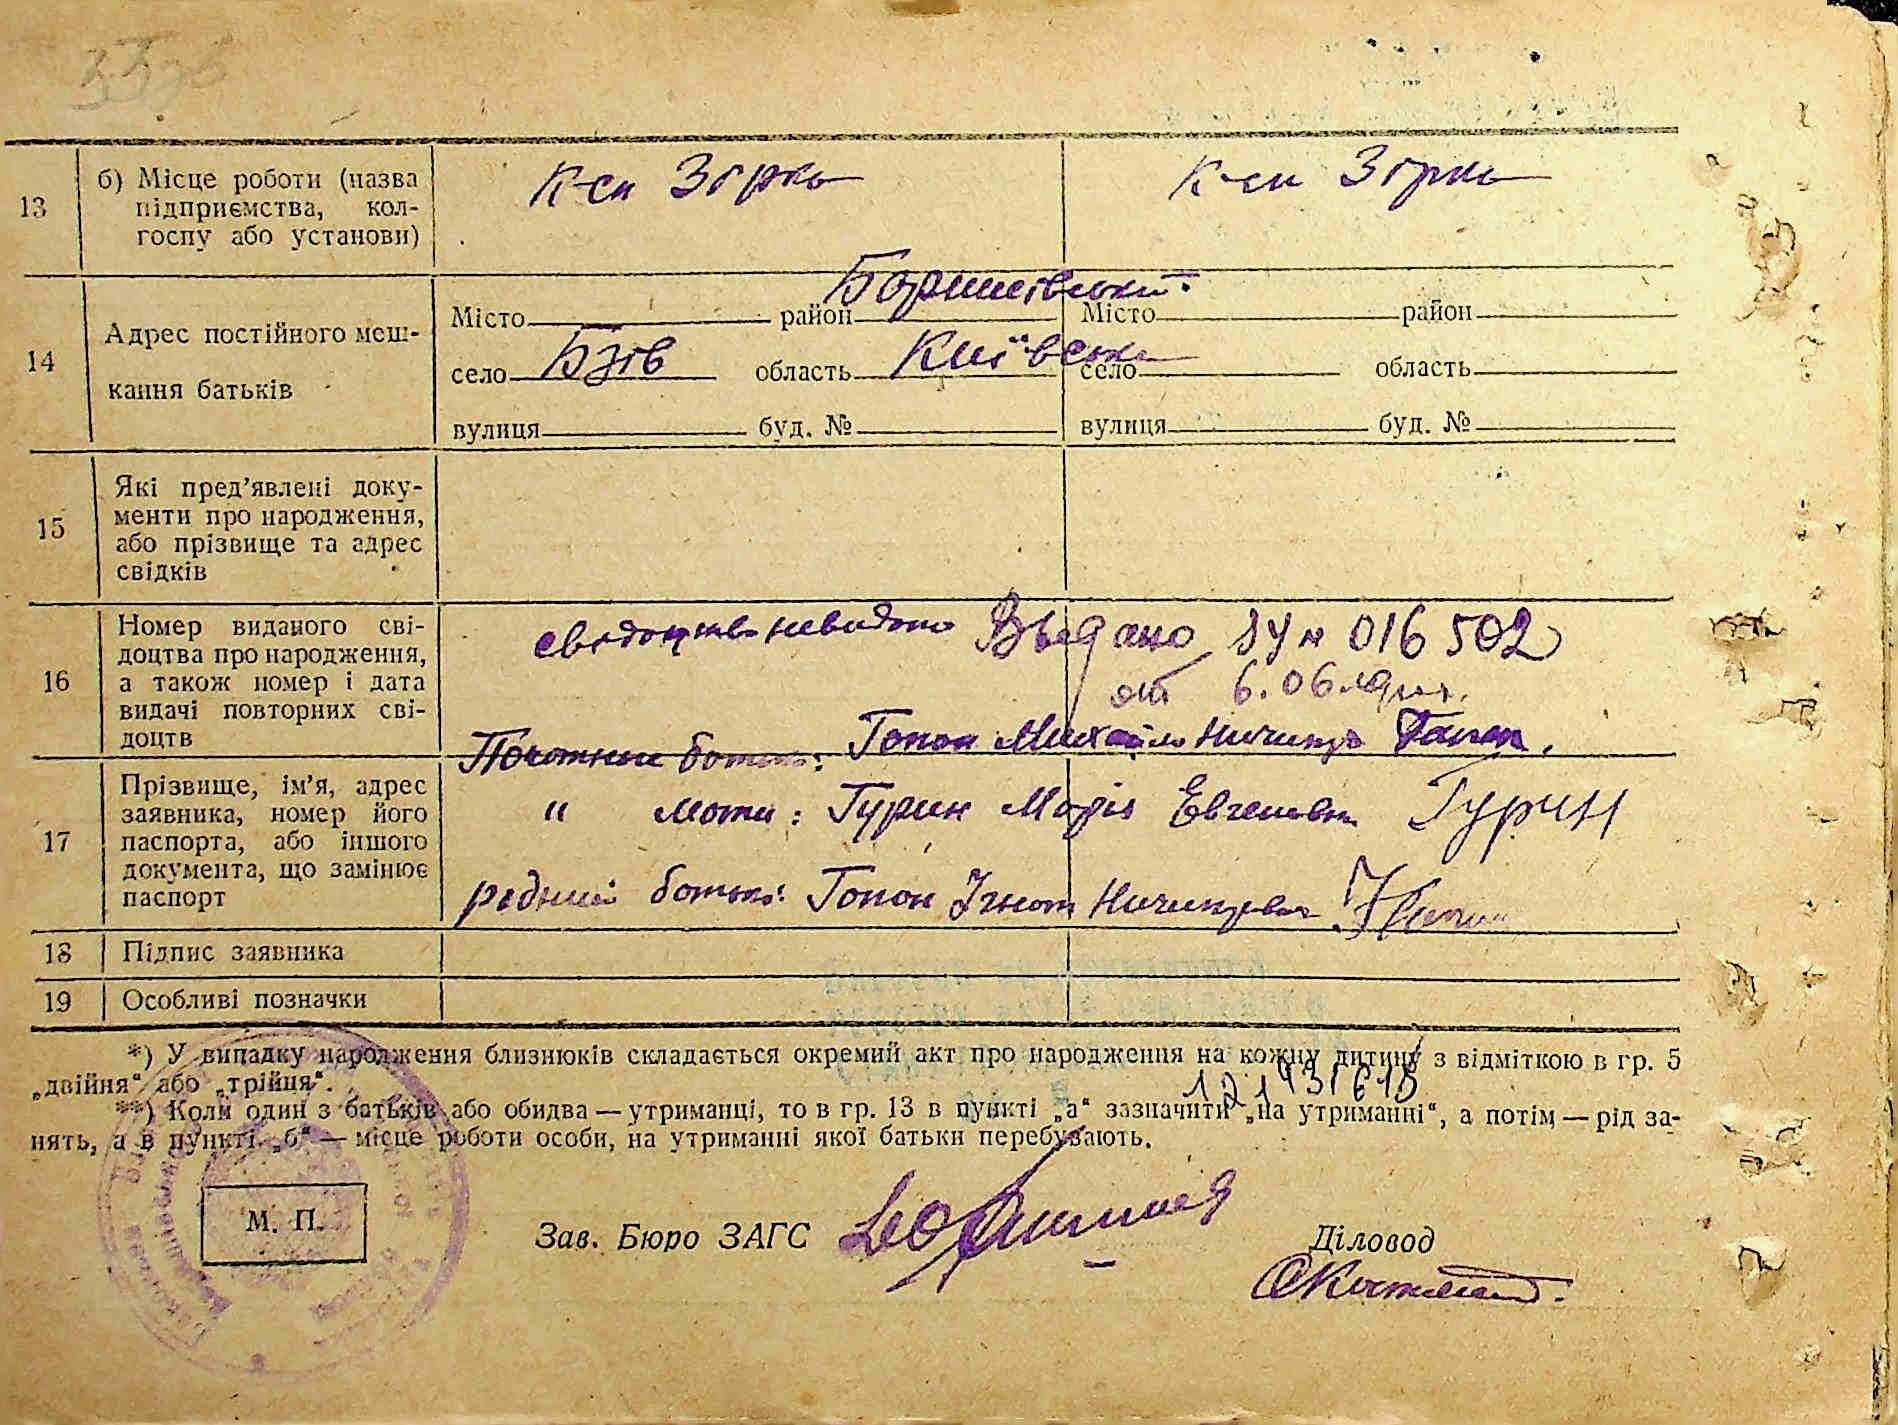 13 б) Місце роботи (назва підприємства, кол- К-сп Зірка К-сп Зірка
госпу або установи)
14 Адрес постійного меш-
кання батьків
Місто район Баришівський Місто район
село Бзів область Київська село область
вулиця буд. № вулиця буд. №
15 Які пред’явлені доку-
менти про народження,
або прізвище та адрес
свідків
16 Номер виданого сві-
доцтва про народження,
а також номер і дата
видачі повторних сві-
доцтв
невидано Выдано 016502
от 6.06
батько: Гопон Михайло Ничипір
17 Прізвище, ім’я, адрес
заявника, номер його
паспорта, або іншого
документа, що замінює
паспорт
" мати: Гурин Марія Евгенівна Гурин
рідний батько: Гопон Ігнат Ничипірович
18 Підпис заявника
19 Особливі позначки
*) У випадку народження близнюків складається окремий акт про народження на кожну дитину з відміткою в гр. 5
„двійня“ або „трійця“.
**) Коли один з батьків або обидва — утриманці, то в гр. 13 в пункті „а“ зазначити „на утриманні“, а потім — рід за-
нять, а в пункті „б“ — місце роботи особи, на утриманні якої батьки перебувають.
М. П.
Зав. Бюро ЗАГС
Діловод